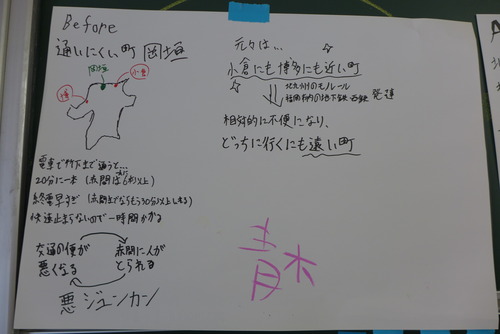 Before
通いにくい町 岡垣
岡垣
小倉
博
電車で竹下まで通うと…
20分に一本(赤間は6本以上)
終電早すぎ(赤間までならもう30分以上しれる)
快速止まらないので一時間かかる
交通の便が
悪くなる
赤間に人が
とられる
悪ジュンカン
元々は…
小倉にも博多にも近い町
北九州のモノレール
福岡市内の地下鉄 西鉄 発達
相対的に不便になり、
どっちに行くにも遠い町
青木